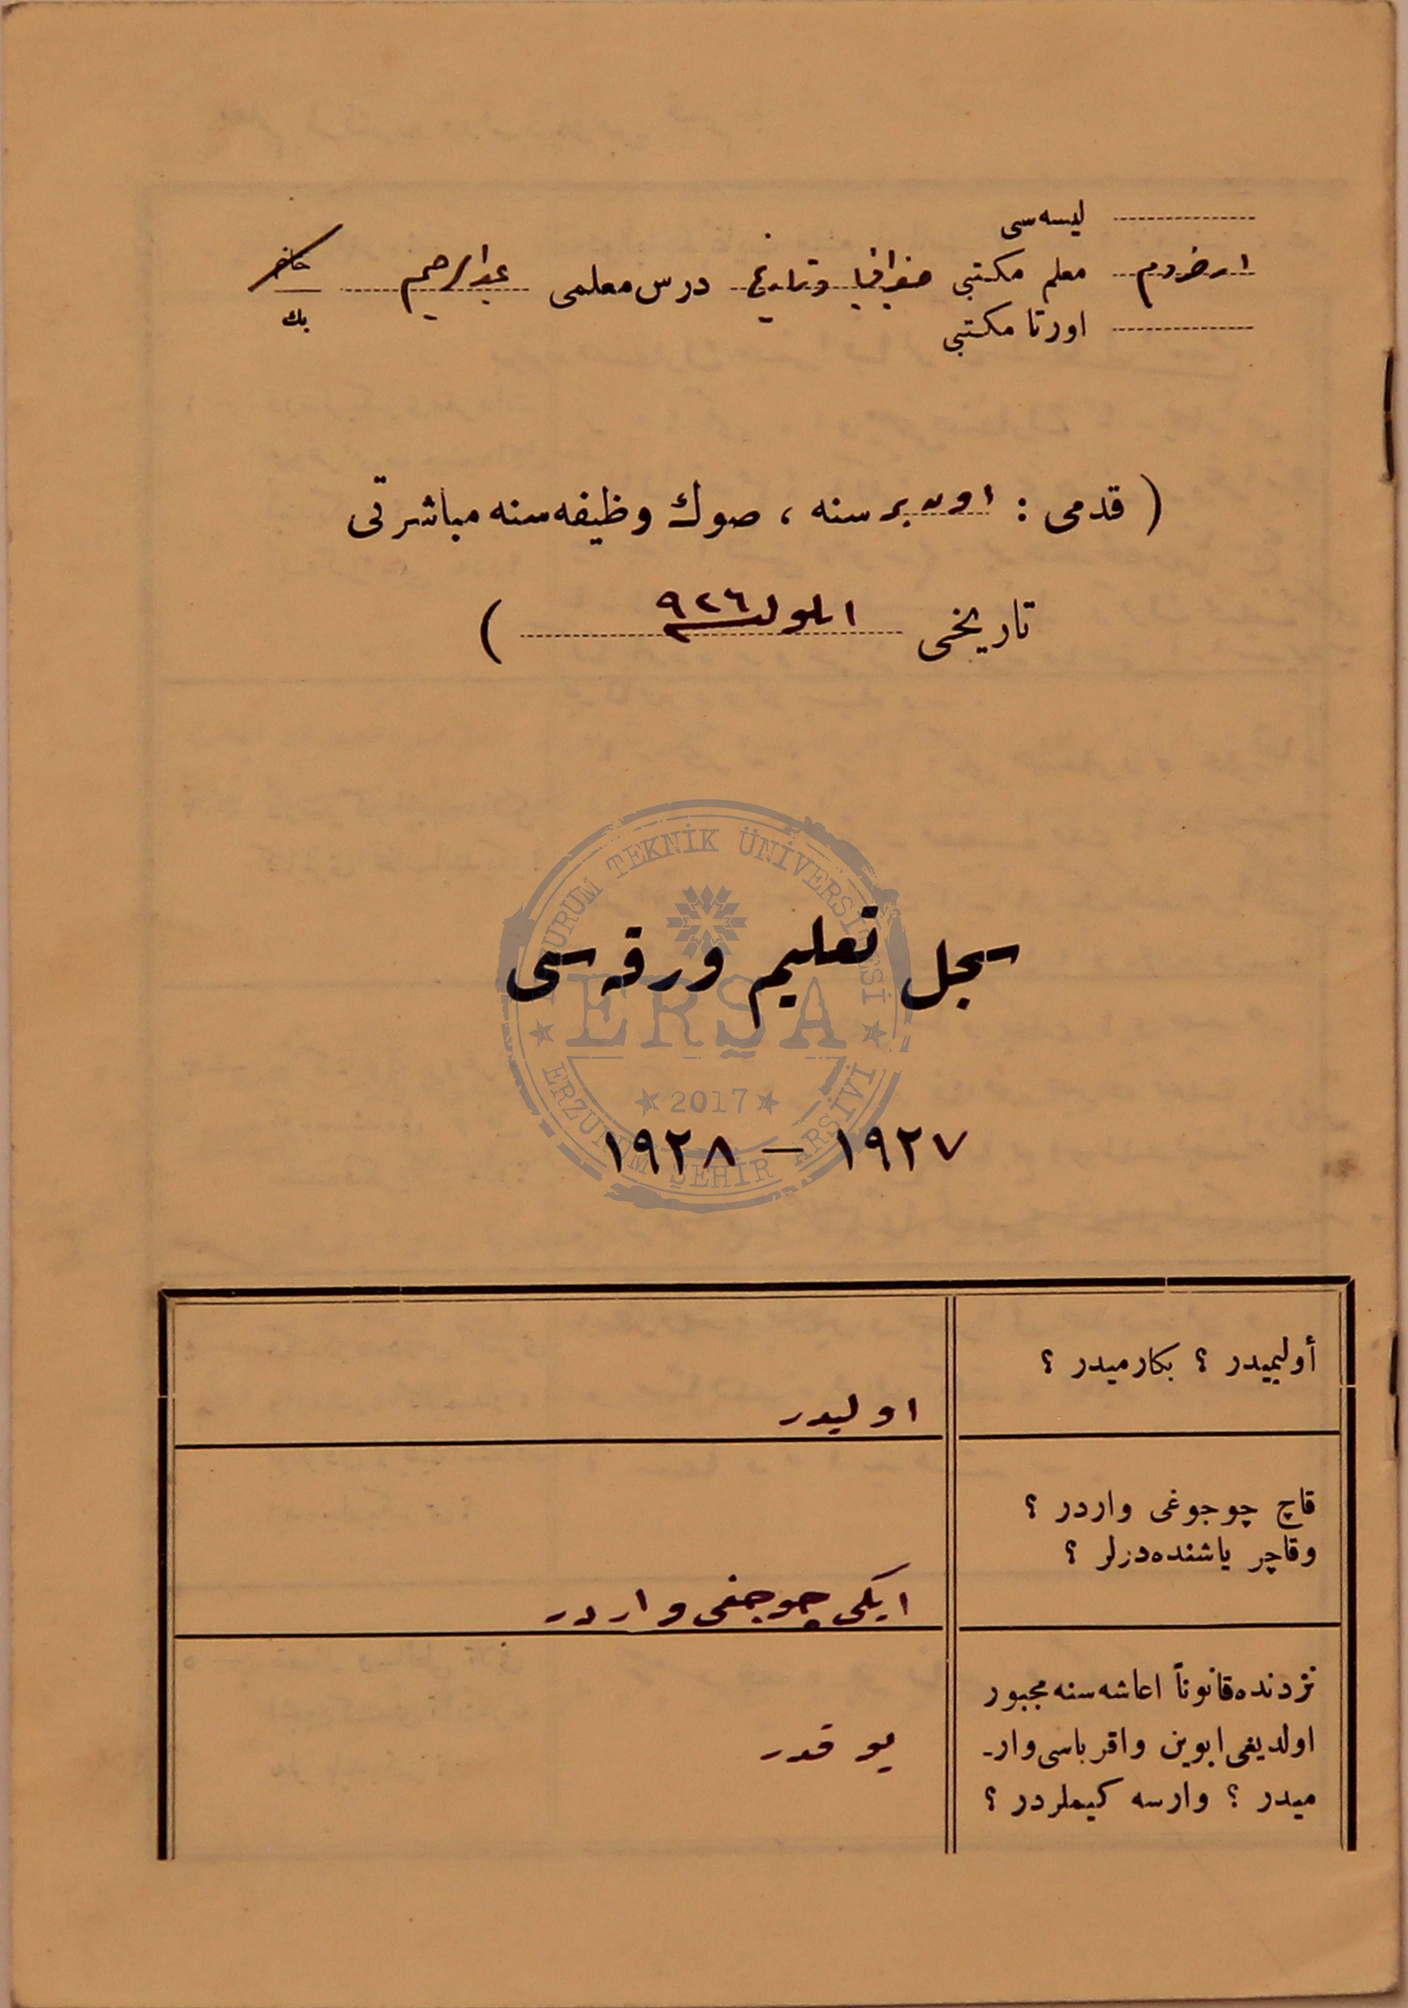 ليسه سی
ارضروم معلم مكتبی جغرافيا و تاريخ درس معلمی عبدالرحيم خانم
بك
اورتا مكتبی
( قدمی : اون بر سنه ، صوك وظيفه سنه مباشرتی
تاريخی ايلول ٩٢٦ )
ERZURUM TEKNİK ÜNİVERSİTESİ
سجل تعليم ورقه سی
ERŞA
2017
ERZURUM ŞEHİR ARŞİVİ
١٩٢٧ – ١٩٢٨
أوليميدر ؟ بكارميدر ؟
اوليدر
قاچ چوجوغی واردر ؟
وقاچر ياشنده درلر ؟
ايكی چوجغی واردر
نزدنده قانوناً اعاشه سنه مجبور
اولديغی ابوين واقرباسی وار-
ميدر ؟ وارسه كيملردر ؟
يوقدر